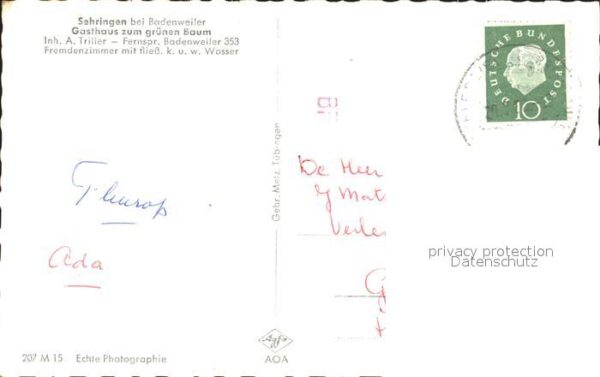 Sehringen bei Badenweiler
Gasthaus zum grünen Baum
Inh. A. Triller – Fernspr. Badenweiler 353
Fremdenzimmer mit fließ. k. u. w. Wasser
DEUTSCHE BUNDESPOST
10
Gebr. Metz Tübingen
De Heer
Ada
privacy protection
Datenschutz
Agfa
AOA
207 M 15 Echte Photographie